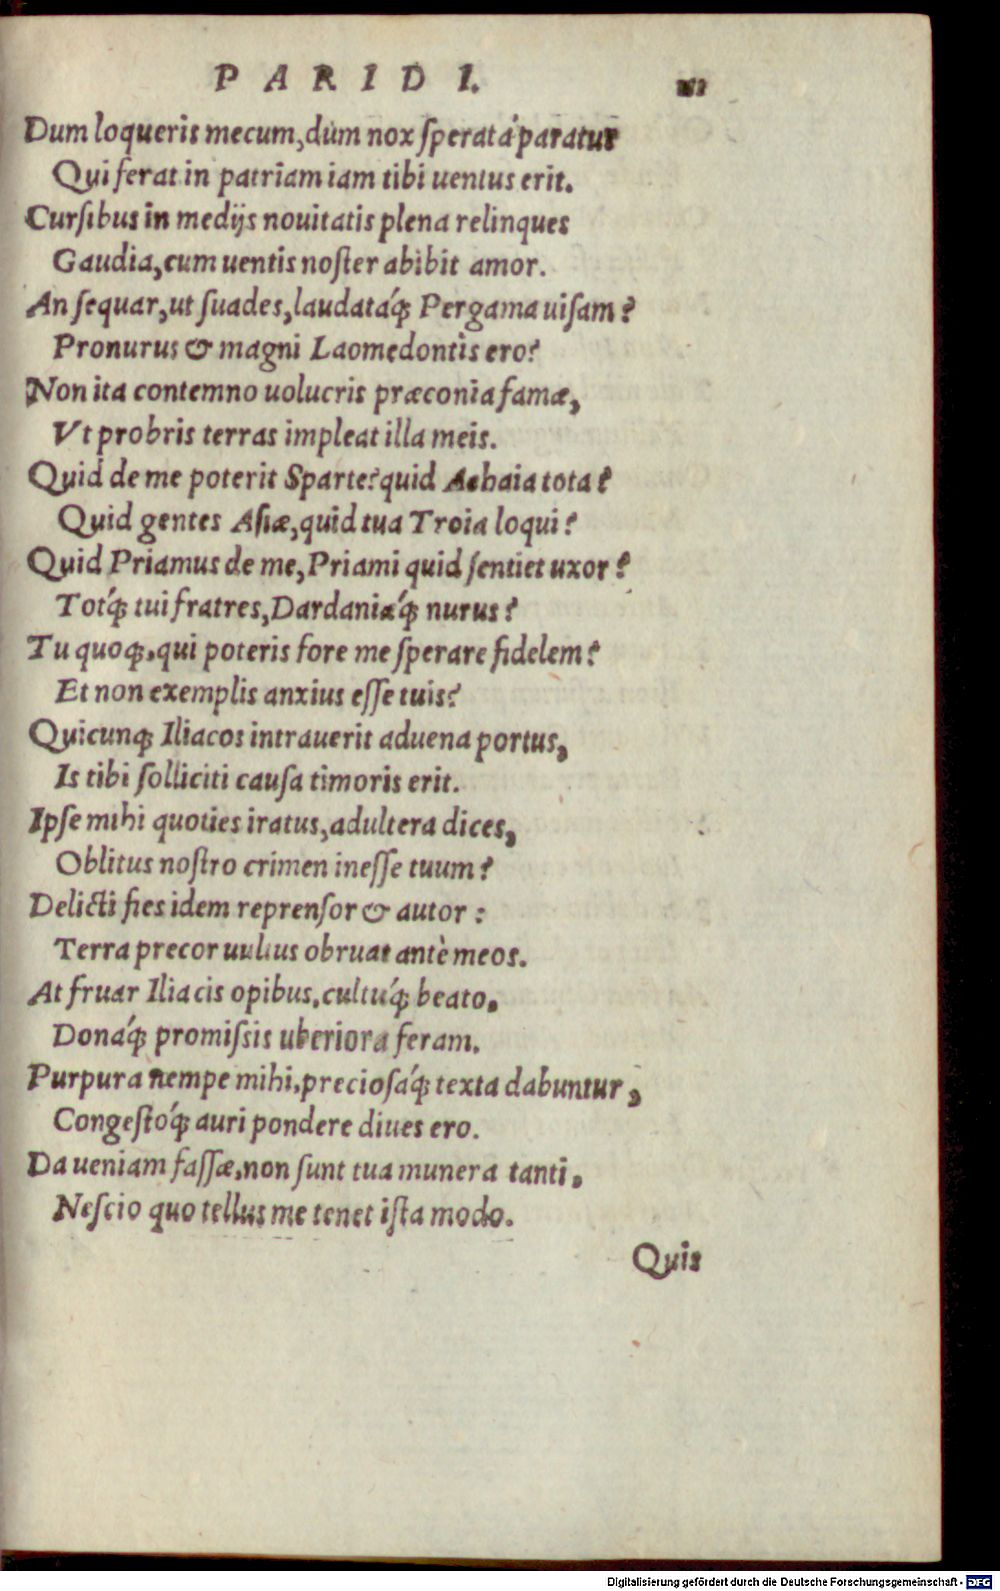 PARIDI.
Dum loqueris mecum, dùm nox sperata paratur
Qui ferat in patriam iam tibi uentus erit.
Cursibus in medijs nouitatis plena relinques
Gaudia, cum uentis noster abibit amor.
An sequar, ut suades, laudatáq́; Pergama uisam?
Pronurus & magni Laomedontis ero?
Non ita contemno uolucris præconia famæ,
Vt probris terras impleat illa meis.
Quid de me poterit Sparte? quid Achaia tota?
Quid gentes Asiæ, quid tua Troia loqui?
Quid Priamus de me, Priami quid sentiet uxor?
Totq́; tui fratres, Dardaniæq́; nurus?
Tu quoq;, qui poteris fore me sperare fidelem?
Et non exemplis anxius esse tuis?
Quicunq; Iliacos intrauerit aduena portus,
Is tibi solliciti causa timoris erit.
Ipse mihi quoties iratus, adultera dices,
Oblitus nostro crimen inesse tuum?
Delicti fies idem reprensor & autor:
Terra precor uultus obruat antè meos.
At fruar Iliacis opibus, cultuq́; beato,
Donaq́; promissis uberiora feram.
Purpura nempe mihi, preciosaq́; texta dabuntur,
Congestoq́; auri pondere diues ero.
Da ueniam fassæ, non sunt tua munera tanti,
Nescio quo tellus me tenet ista modo.
Quis
Digitalisierung gefördert durch die Deutsche Forschungsgemeinschaft - DFG